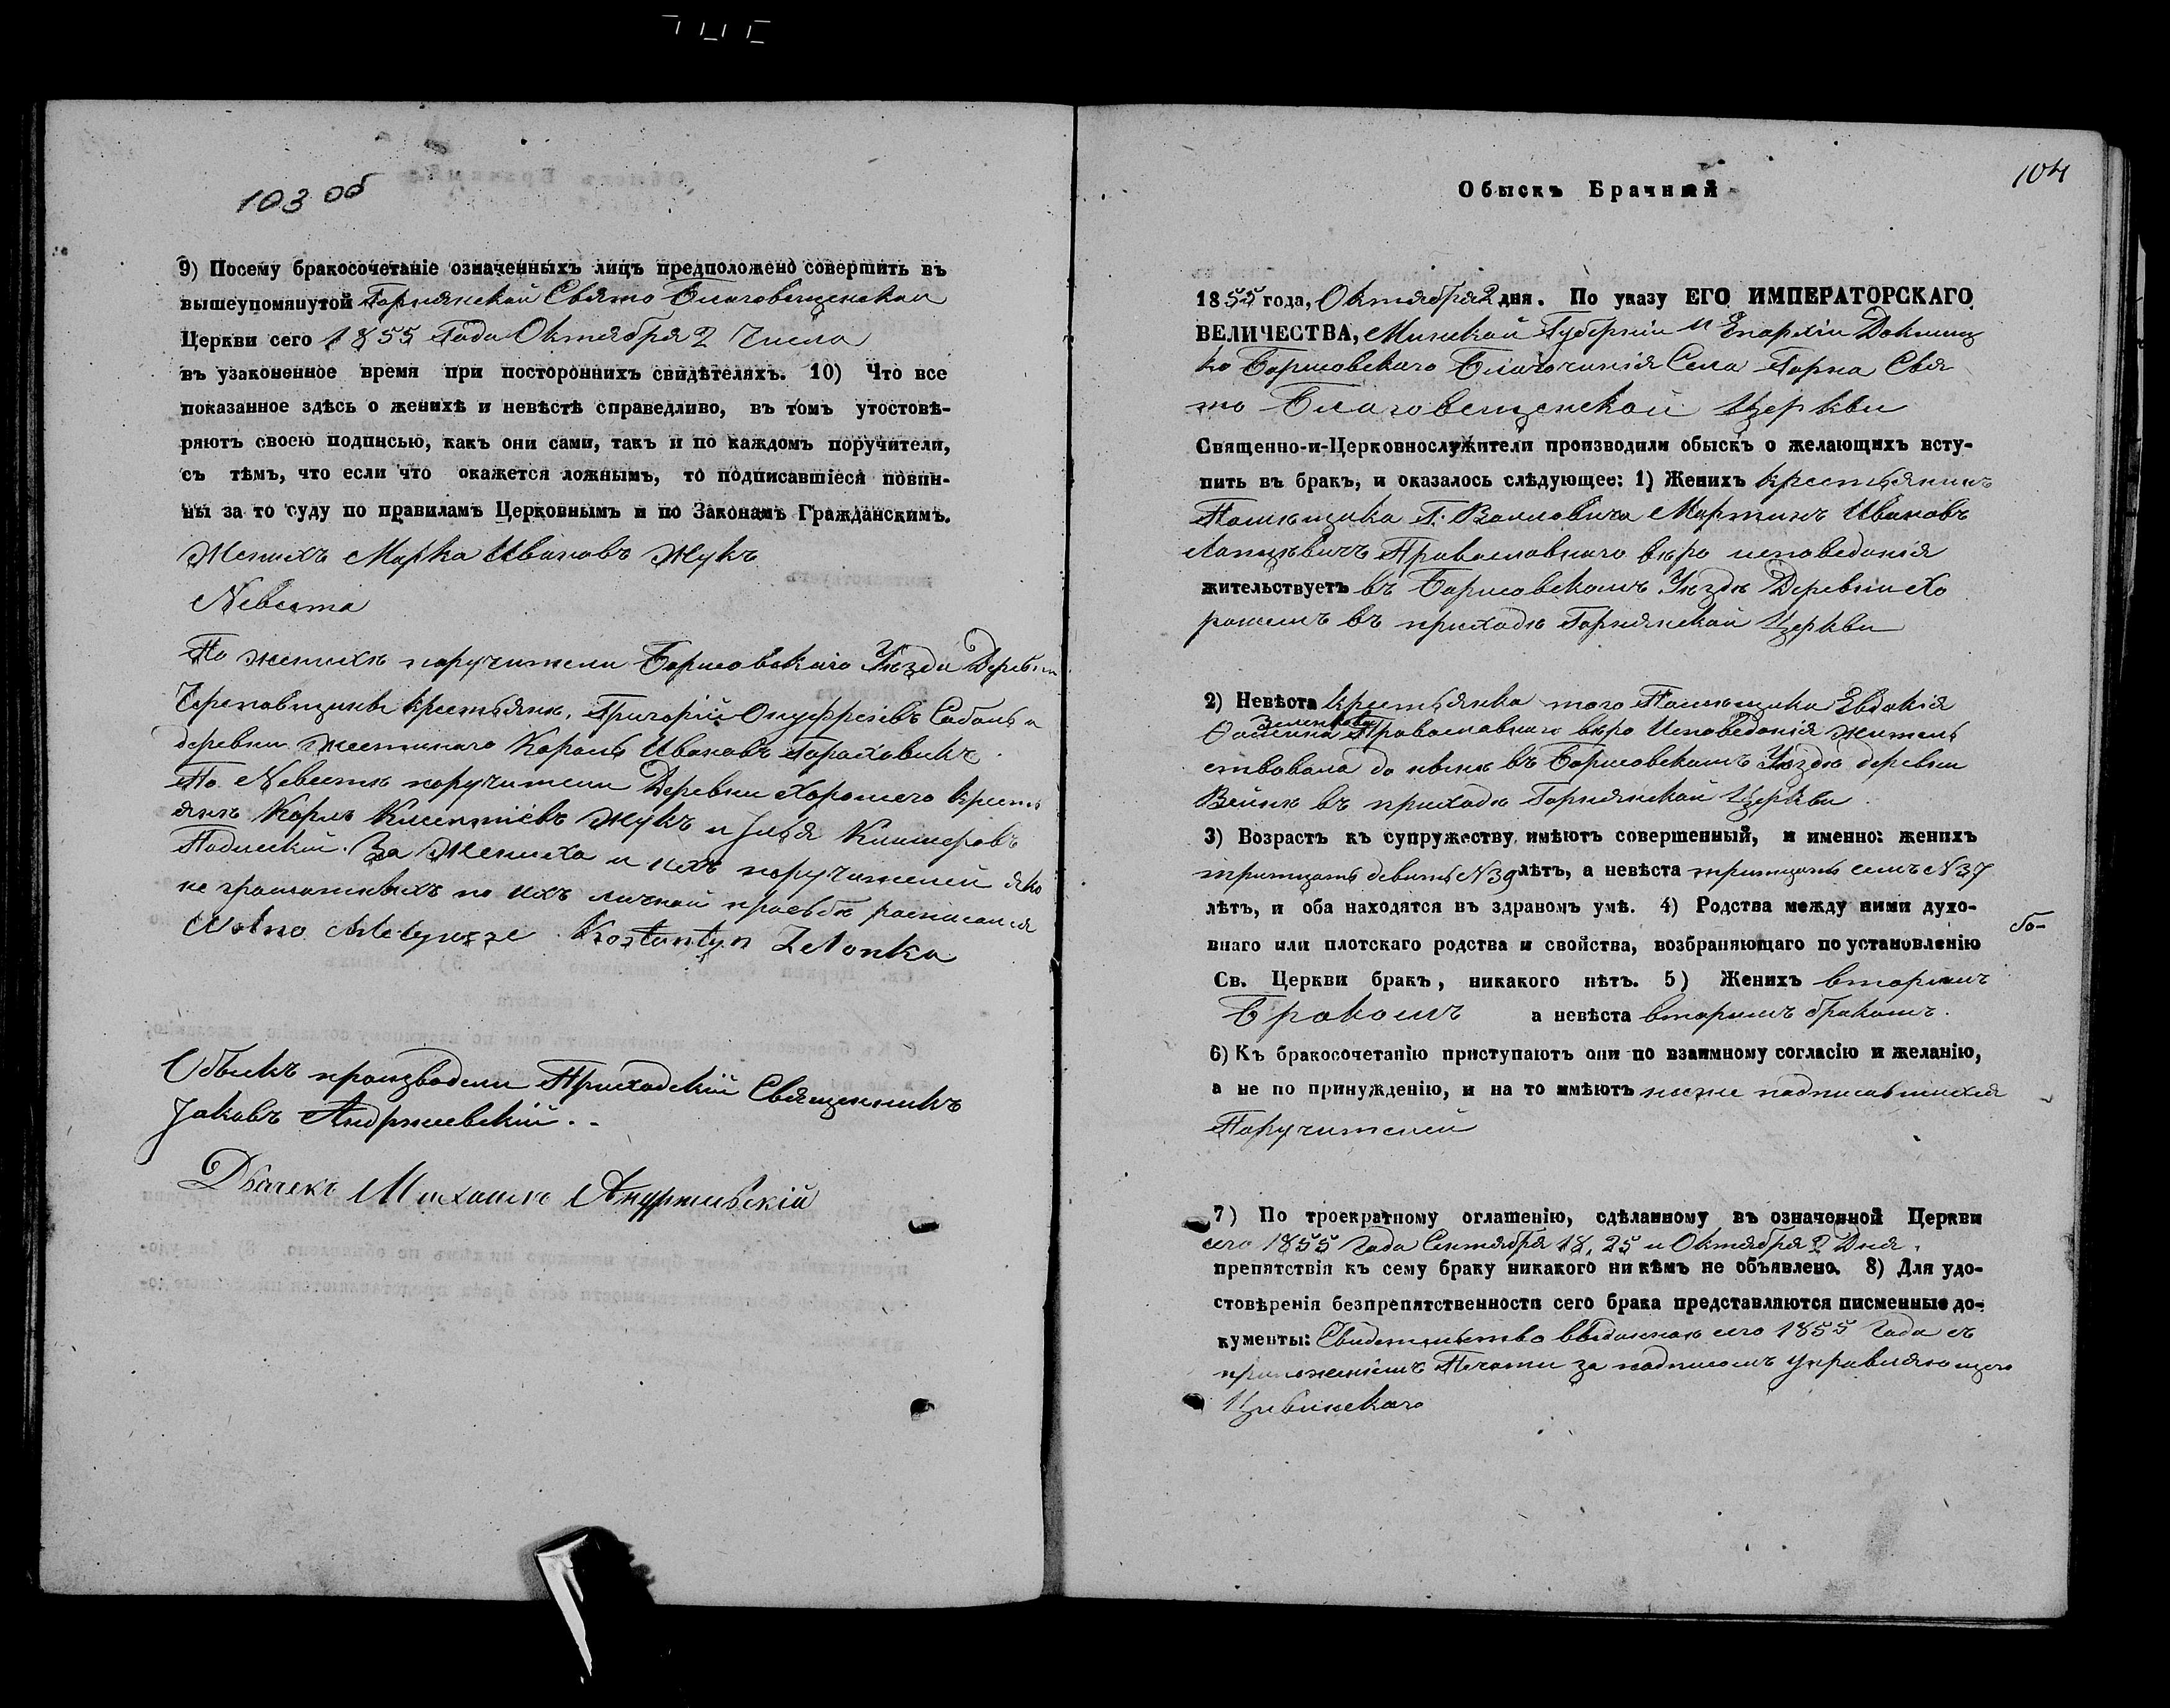 103 об
9) Посему бракосочетаніе означенныхъ лицъ предположено совершить въ
вышеупомянутой Горнянской Свято Благовещенской
Церкви сего 1855 Года Октября 2 Числа
въ узаконенное время при постороннихъ свидѣтеляхъ. 10) Что все
показанное здѣсь о женихѣ и невѣстѣ справедливо, въ томъ утостовѣ-
ряютъ своею подписью, какъ они сами, такъ и по каждомъ поручители,
съ тѣмъ, что если что окажется ложнымъ, то подписавшіеся повин-
ны за то суду по правиламъ Церковнымъ и по Законамъ Гражданскимъ.
Женихъ Марка Ивановъ Жукъ
Nевеста
По женихѣ поручители Борисовскаго Уѣзда Деревни
крестьяне, Григорій Онуфріевъ и
деревни Король Ивановъ
По Nевестѣ поручители Деревни Хорошего крестья
яне Карлъ Жукъ и Илья
За Жениха и ихъ поручителей яко
не грамотныхъ по ихъ личной прозьбѣ росписался
Kostantyn Zelonka
Обыскъ производили Приходскій Священникъ
Іаковъ Андржиевскій..
Дьячекъ Андржиевскій
104
Обыскъ Брачный
1855 года, Октября 2 дня. По указу ЕГО ИМПЕРАТОРСКАГО
ВЕЛИЧЕСТВА, Минской Губерніи и Епархіи Докшиц
ко Борисовскаго Благочинія Села Горна Свя
то Благовещенской Церкви
Священно-и-Церковнослужители производили обыскъ о желающихъ всту-
пить въ бракъ, и оказалось слѣдующее: 1) Женихъ крестьянинъ
Помѣщика Г. Воловича Мартинъ Ивановъ
Православнаго вѣро исповеданія
жительствуетъ въ Борисовскомъ Уѣздѣ Деревни Хо
рошемъ въ приходѣ Горнянской Церкви
2) Невѣста крестьянка того Помѣщика Евдокія
Зеленкова
Православнаго вѣро Исповеданія житель
ствовала до нынѣ въ Борисовскомъ Уѣздѣ деревни
въ приходѣ Горнянской Церкви.
3) Возрастъ къ супружеству имѣютъ совершенный, и именно: женихъ
тритцать девять N 39 лѣтъ, а невѣста тритцать семъ N 37
лѣтъ, и оба находятся въ здравомъ умѣ. 4) Родства между ними духо-
внаго или плотскаго родства и свойства, возбраняющаго по установленію
Св. Церкви бракъ, никакого нѣтъ. 5) Женихъ вторимъ
Бракомъ а невѣста вторимъ бракомъ.
6) Къ бракосочетанію приступаютъ они по взаимному согласію и желанію,
а не по принужденію, и на то имѣютъ ниже подписавшихся
Поручителей
7) По троекратному оглашенію, сдѣланному въ означенной Церкви
сего 1855 Года Сентября 18, 25 и Октября 2 Дня,
препятствія къ сему браку никакого ни кѣмъ не объявлено. 8) Для удо-
стовѣренія безпрепятственности сего брака представляются писменные до-
кументы: Свидетельство выданное сего 1855 Года съ
приложеніемъ Печати за подписомъ управляющего